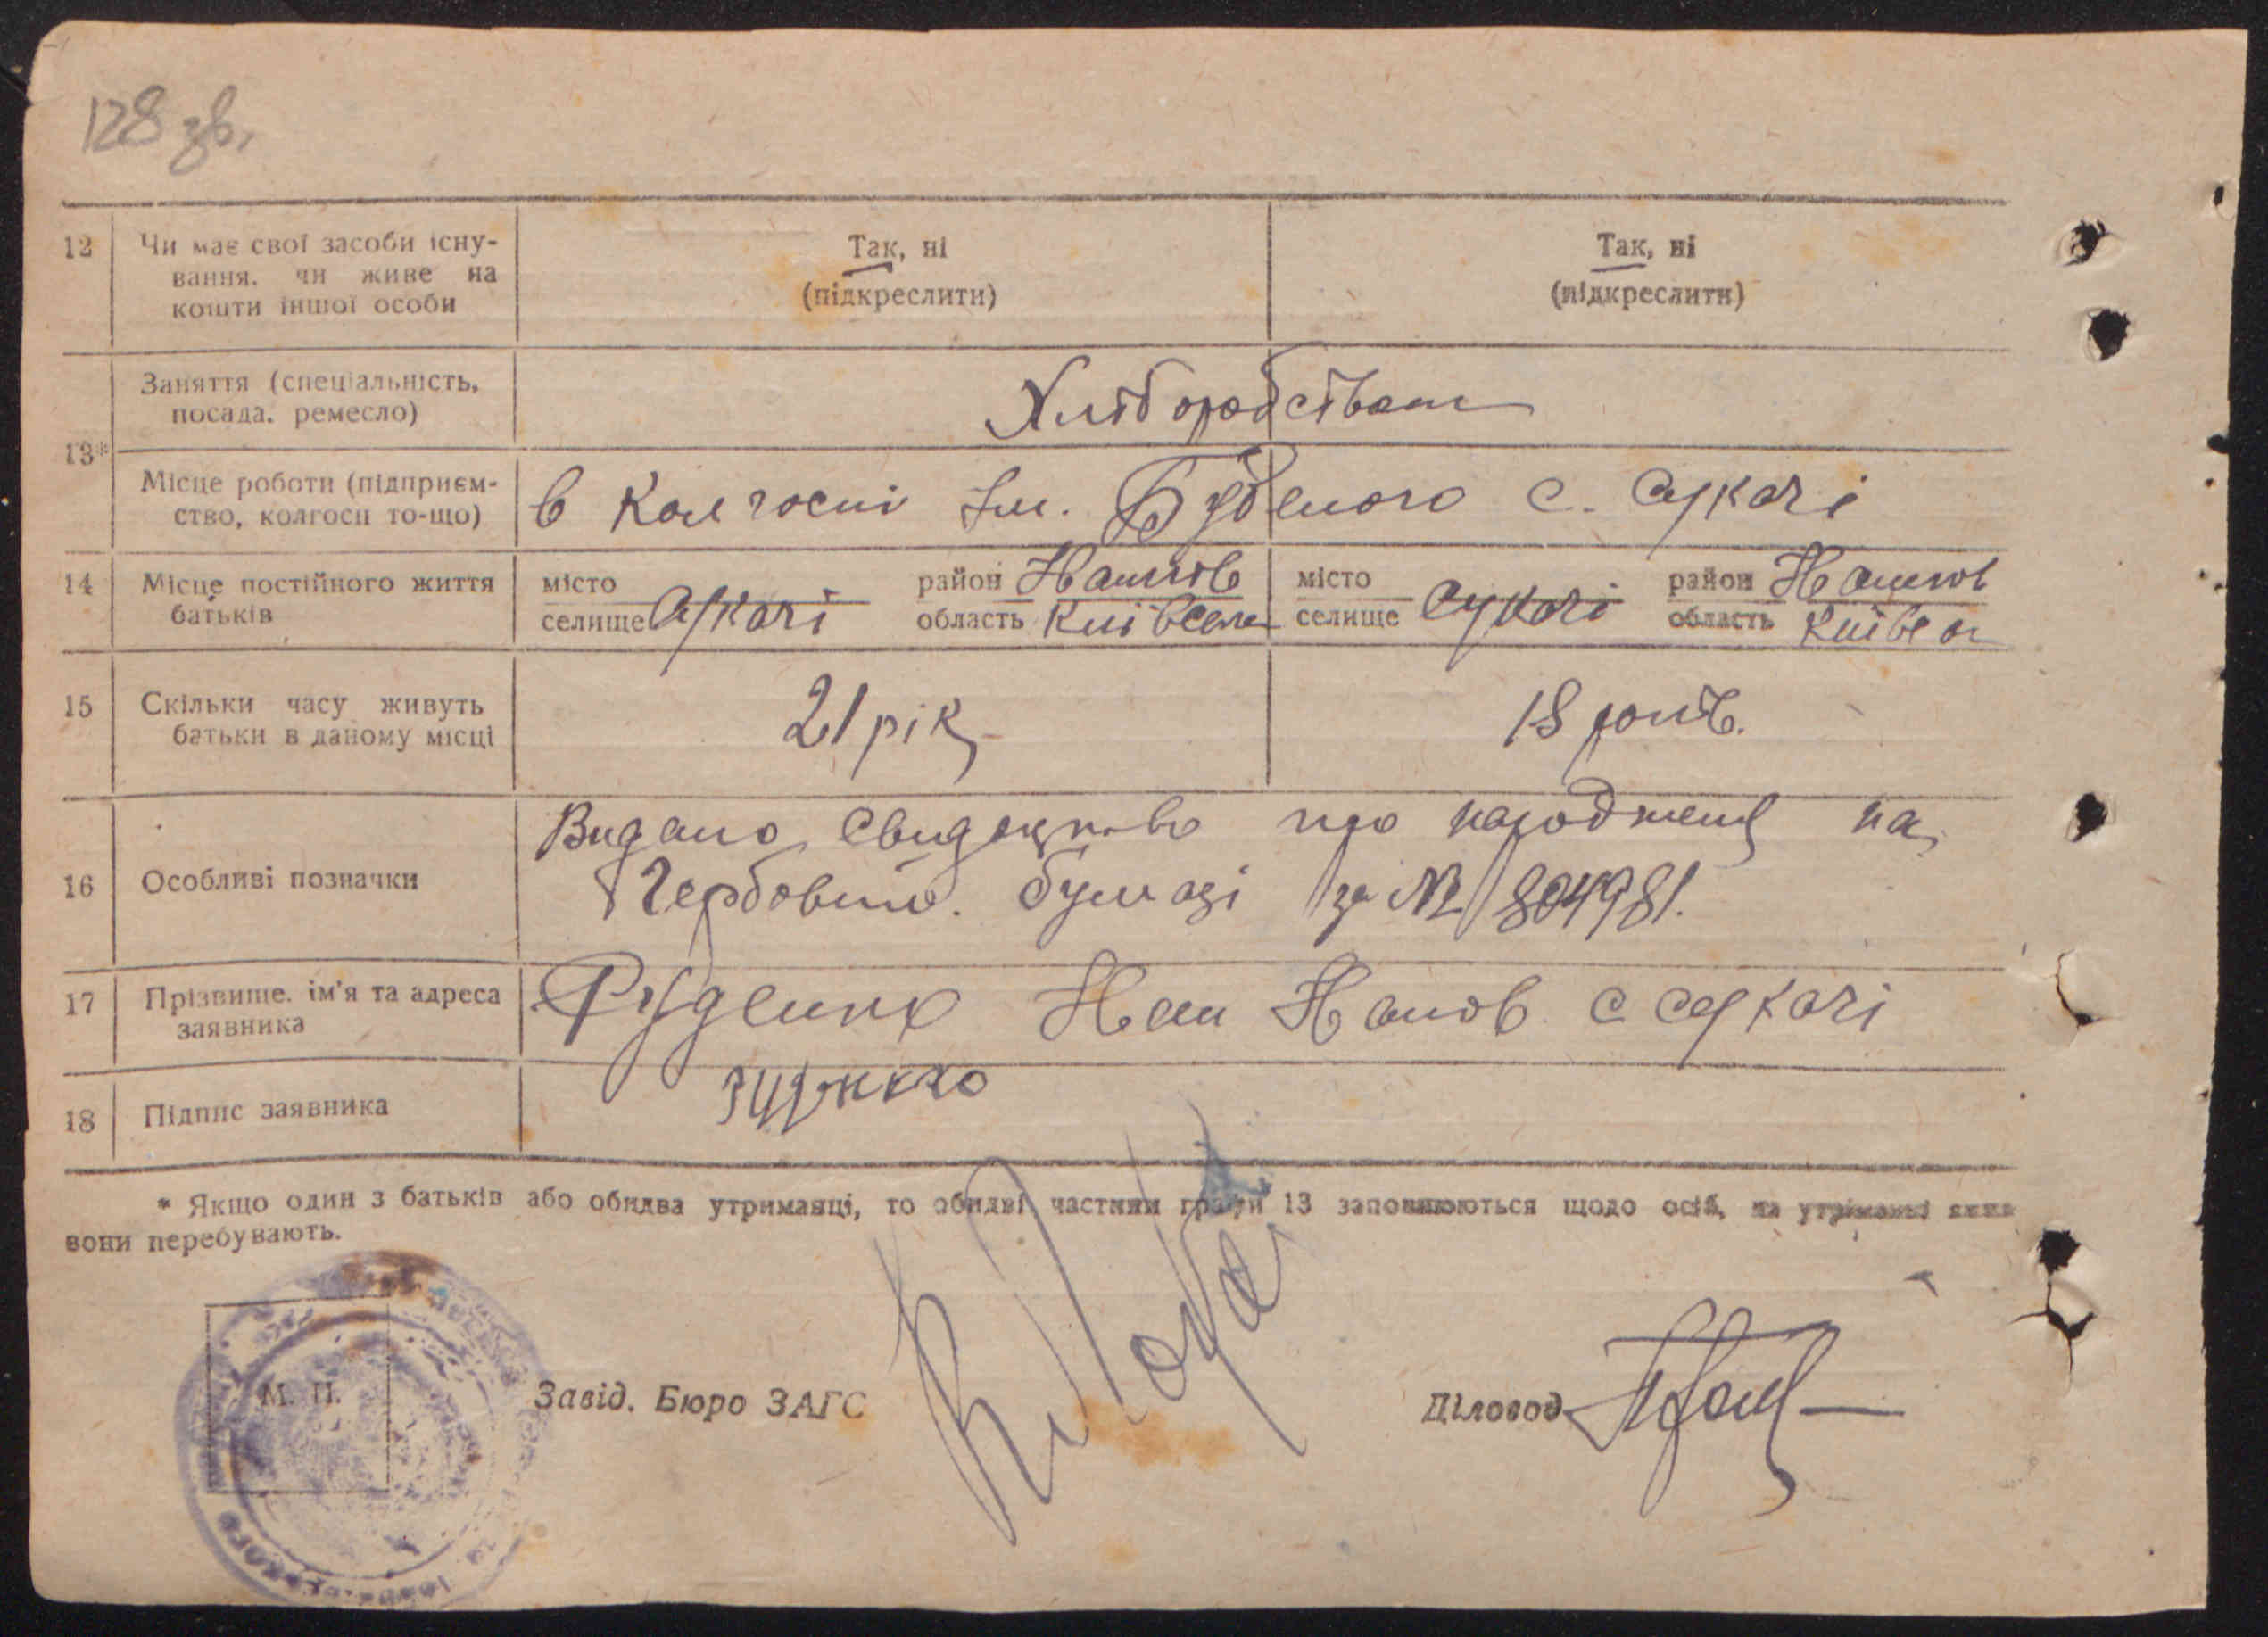 128 зв.
12 Чи має свої засоби існу- Так, ні Так, ні
вання, чи живе на (підкреслити) (підкреслити)
кошти іншої особи
Заняття (спеціальність, Хліборобством
посада, ремесло)
13*
Місце роботи (підприєм- в колгоспі Ім. Будьоного с. Сукачі
ство, колгосп то-що)
14 Місце постійного життя місто район Іванків місто район Іванков
батьків селище Сукачі область Київська селище Сукачі область
15 Скільки часу живуть 21 рік 18 років.
батьки в даному місці
Видано про народження на
16 Особливі позначки Гербовій бумазі за № 804981.
17 Прізвище, ім'я та адреса Руденко Іван Іванов. с Сукачі
заявника
18 Підпис заявника
* Якщо один з батьків або обидва утриманці, то обидві частини графи 13 заповнюються щодо осіб, на утриманні яких
вони перебувають.
М. П.
Завід. Бюро ЗАГС Діловод